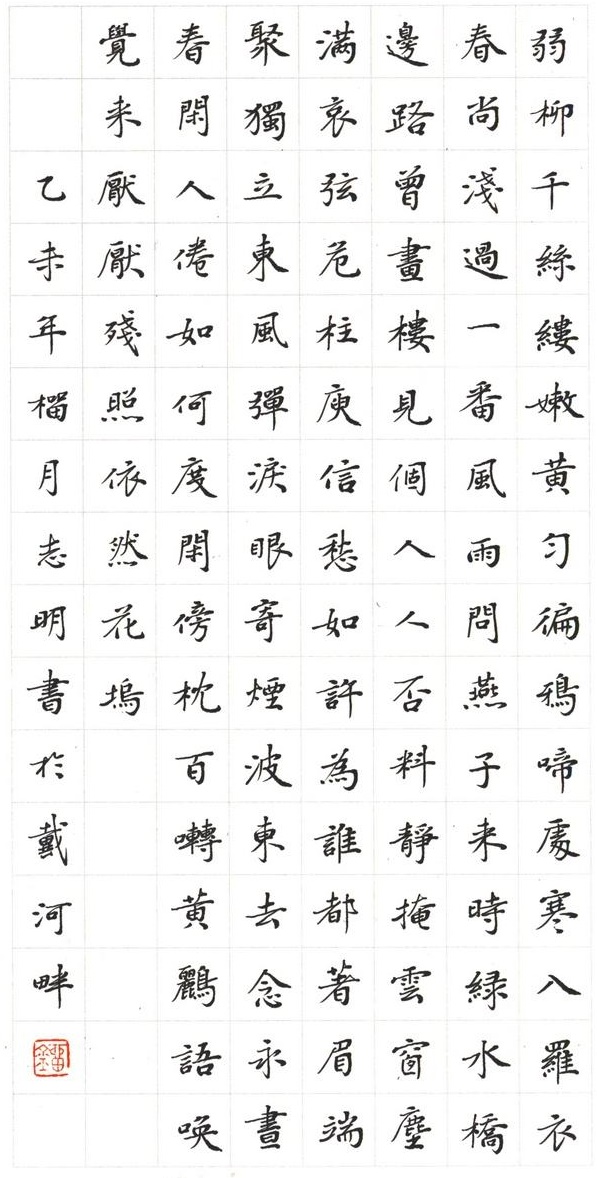 弱柳千絲縷嫩黃勻徧鴉啼處寒入羅衣
春尚淺過一番風雨問燕子来時緑水橋
邊路曾畫樓見個人人否料靜掩雲窗塵
満哀弦危柱庾信愁如許為誰都著眉端
聚獨立東風彈淚眼寄煙波東去念永晝
春閑人倦如何度閑傍枕百囀黃鸝語喚
覺来厭厭殘照依然花塢
乙未年榴月志明書於戴河畔